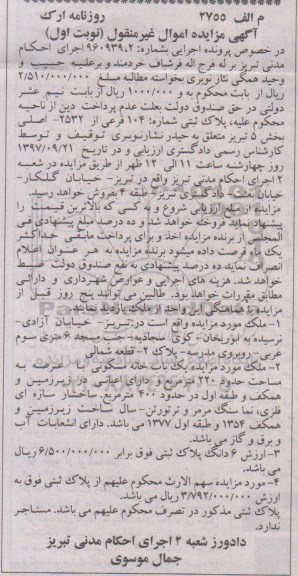 م الف ۲۷۵۵ روزنامه ارک
آگهی مزایده اموال غیرمنقول (نوبت اول)
در خصوص پرونده اجرایی بشماره: ۹۶۰۹۳۹،۲ اجرای احکام
مدنی تبریز بر له فرح اله فرشباف خردمند و برعلیه حبیب و
وحید همگی نثار نوبری بخواسته مطالبه مبلغ ۲/۵۱۰/۰۰۰/۰۰۰
ریال از بابت محکوم به و ۱۰۰۰/۰۰۰ ریال از بابت نیم عشر
دولتی در حق صندوق دولت بعلت عدم پرداخت دین از ناحیه
محکوم علیه، پلاک ثبتی شماره: ۱۰۴ فرعی از ۲۵۳۲- اصلی
بخش ۵ تبریز متعلق به حیدر نثارنوبری توقیف و توسط
کارشناس رسمی دادگستری ارزیابی و در تاریخ ۱۳۹۷/۰۹/۲۱
روز چهارشنبه ساعت ۱۱ الی ۱۲ ظهر از طریق مزایده در شعبه
۲ اجرای احکام مدنی تبریز واقع در تبریز- خیابان گلکار-
خیابان بعثت- دادگستری تبریز- طبقه ۴ بفروش خواهد رسید.
مزایده از مبلغ ارزیابی شروع و به کسی که بالاترین قیمت را
پیشنهاد نماید فروخته خواهد شد و ده درصد مبلغ پیشنهادی فی
المجلس از برنده مزایده اخذ و برای پرداخت مابقی حداکثر
یک ماه فرصت داده میشود برنده مزایده به هر عنوان اعلام
انصراف نماید ده درصد پیشنهادی به نفع صندوق دولت ضبط
خواهد شد. هزینه های اجرایی و عوارض شهرداری و دارائی
مطابق مقررات خواهد بود. طالبین می توانند پنج روز قبل از
مزایده با هماهنگی این واحد از ملک بازدید نمایند.
۱- ملک مورد مزایده واقع است در: تبریز- خیابان آزادی-
نرسیده به ابوریحان- کوی سجادیه- جنب مسجد ۶ متری سوم
غربی- روبروی مدرسه- پلاک ۲- قطعه شمالی
۲- ملک مورد مزایده یک باب خانه مسکونی با عرصه به
مساحت حدود ۲۲۰ مترمربع و دارای اعیانی در زیرزمین و
همکف و طبقه اول در حدود ۴۰۰ مترمربع. ساختار سازه ای
فلزی، نما سنگ مرمر و تراورتن- سال ساخت زیرزمین و
همکف ۱۳۵۴ و طبقه اول ۱۳۷۷ می باشد. دارای انشعابات آب
و برق و گاز می باشد.
۳- ارزش ۶ دانگ پلاک ثبتی فوق برابر ۶/۵۰۰/۰۰۰/۰۰۰ ریال
می باشد.
۴- مورد مزایده سهم الارث محکوم علیهم از پلاک ثبتی فوق به
ارزش ۳/۷۹۲/۰۰۰/۰۰۰ ریال می باشد.
پلاک ثبتی مذکور در تصرف محکوم علیهم می باشد. مستاجر
ندارد.
دادورز شعبه ۲ اجرای احکام مدنی تبریز
جمال موسوی